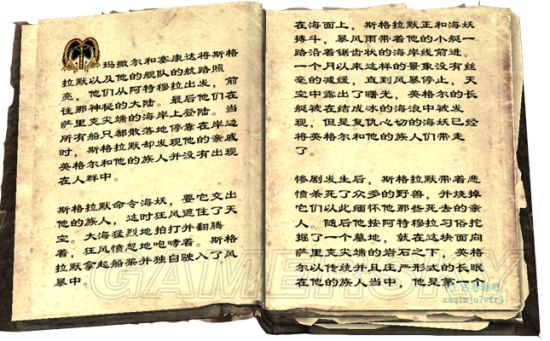 玛撒尔和塞康达将斯格
拉默以及他的舰队的航路照
亮,他们从阿特穆拉出发,前
往那神秘的大陆。最后他们在
萨里克尖端的海岸上登陆。当
所有船只都散落地停靠在岸边
时,斯格拉默却发现他的亲戚
英格尔和他的族人并没有出现
在人群中。
斯格拉默命令海妖,要它交出
他的族人,这时狂风遮住了天
空。大海猛烈地拍打并翻腾
着,狂风愤怒地咆哮着。斯格
拉默拿起船桨并独自驶入了风
暴中。
在海面上,斯格拉默正和海妖
搏斗,暴风雨带着他的小艇一
路沿着锯齿状的海岸线前进。
一个月以来这样的景象没有丝
毫的减缓,直到风暴停止,天
空中露出了曙光,英格尔的长
艇被在结成冰的海浪中被发
现,但是复仇心切的海妖已经
将英格尔和他的族人们带走
了。
惨剧发生后,斯格拉默带着悲
愤杀死了众多的野兽,并烧掉
它们以此缅怀他那些死去的亲
人。随后他按阿特穆拉习俗挖
掘了一个墓地,就在这块面向
萨里克尖端的岩石之下。英格
尔以传统并且庄严形式的长眠
在他的族人当中,他是第一个
GAMERSKY